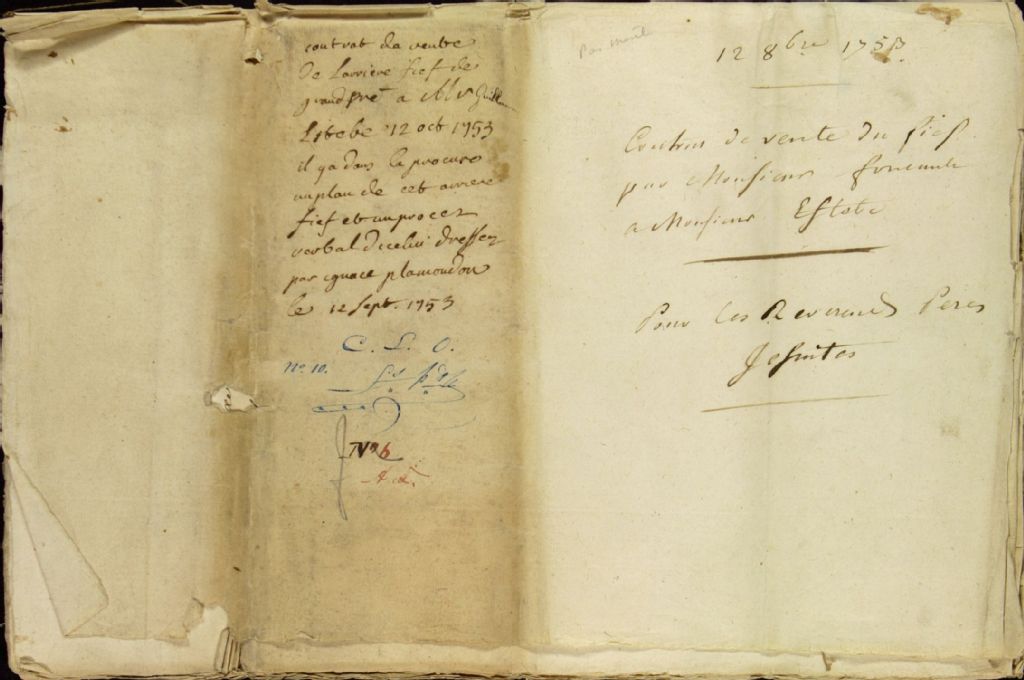 contrat da vente
De Larriere fief de
grandpré a Mr Guille
Estebe 12 oct 1753
il ya dans la procure
un plan de cet arriere
fief et un procez
verbal d'icelui dressez
par ignace plamondon
le 12 Sept. 1753
C. L. O.
No. 10.
No 6
12 8bre 1753.
Contrat de vente du fief
par Monsieur
a Monsieur Estebe
Pour Les Reverends Peres
Jesuites